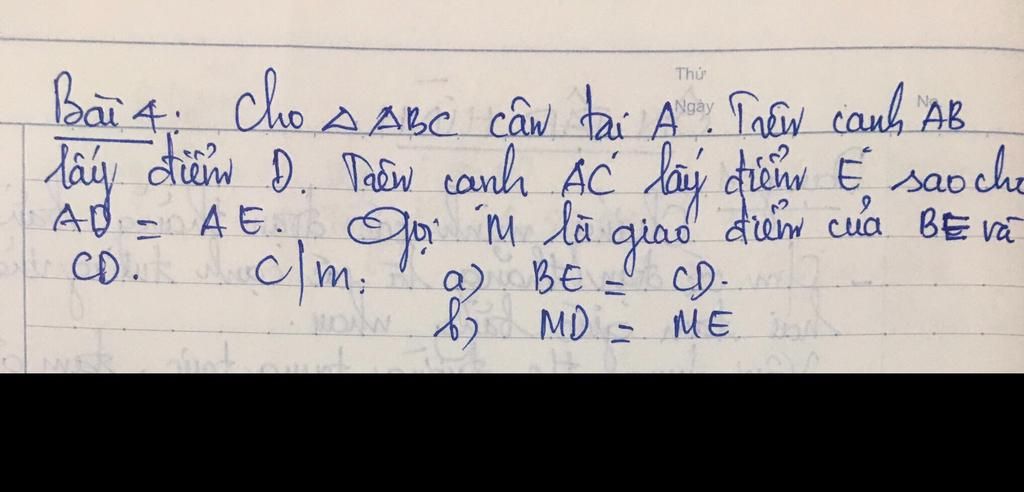 Thứ
Ngày
No
Bài 4: Cho △ ABC cân tại A. Trên cạnh AB
lấy điểm D. Trên cạnh AC lấy điểm E sao cho
AD = AE. Gọi M là giao điểm của BE và
CD. C/m: a) BE = CD.
b) MD = ME